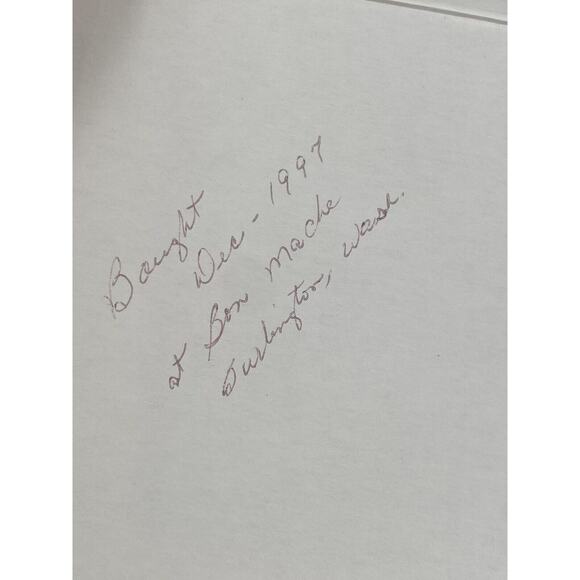 Bought
Dec - 1997
at Bon Mache
Burlington, Wash.